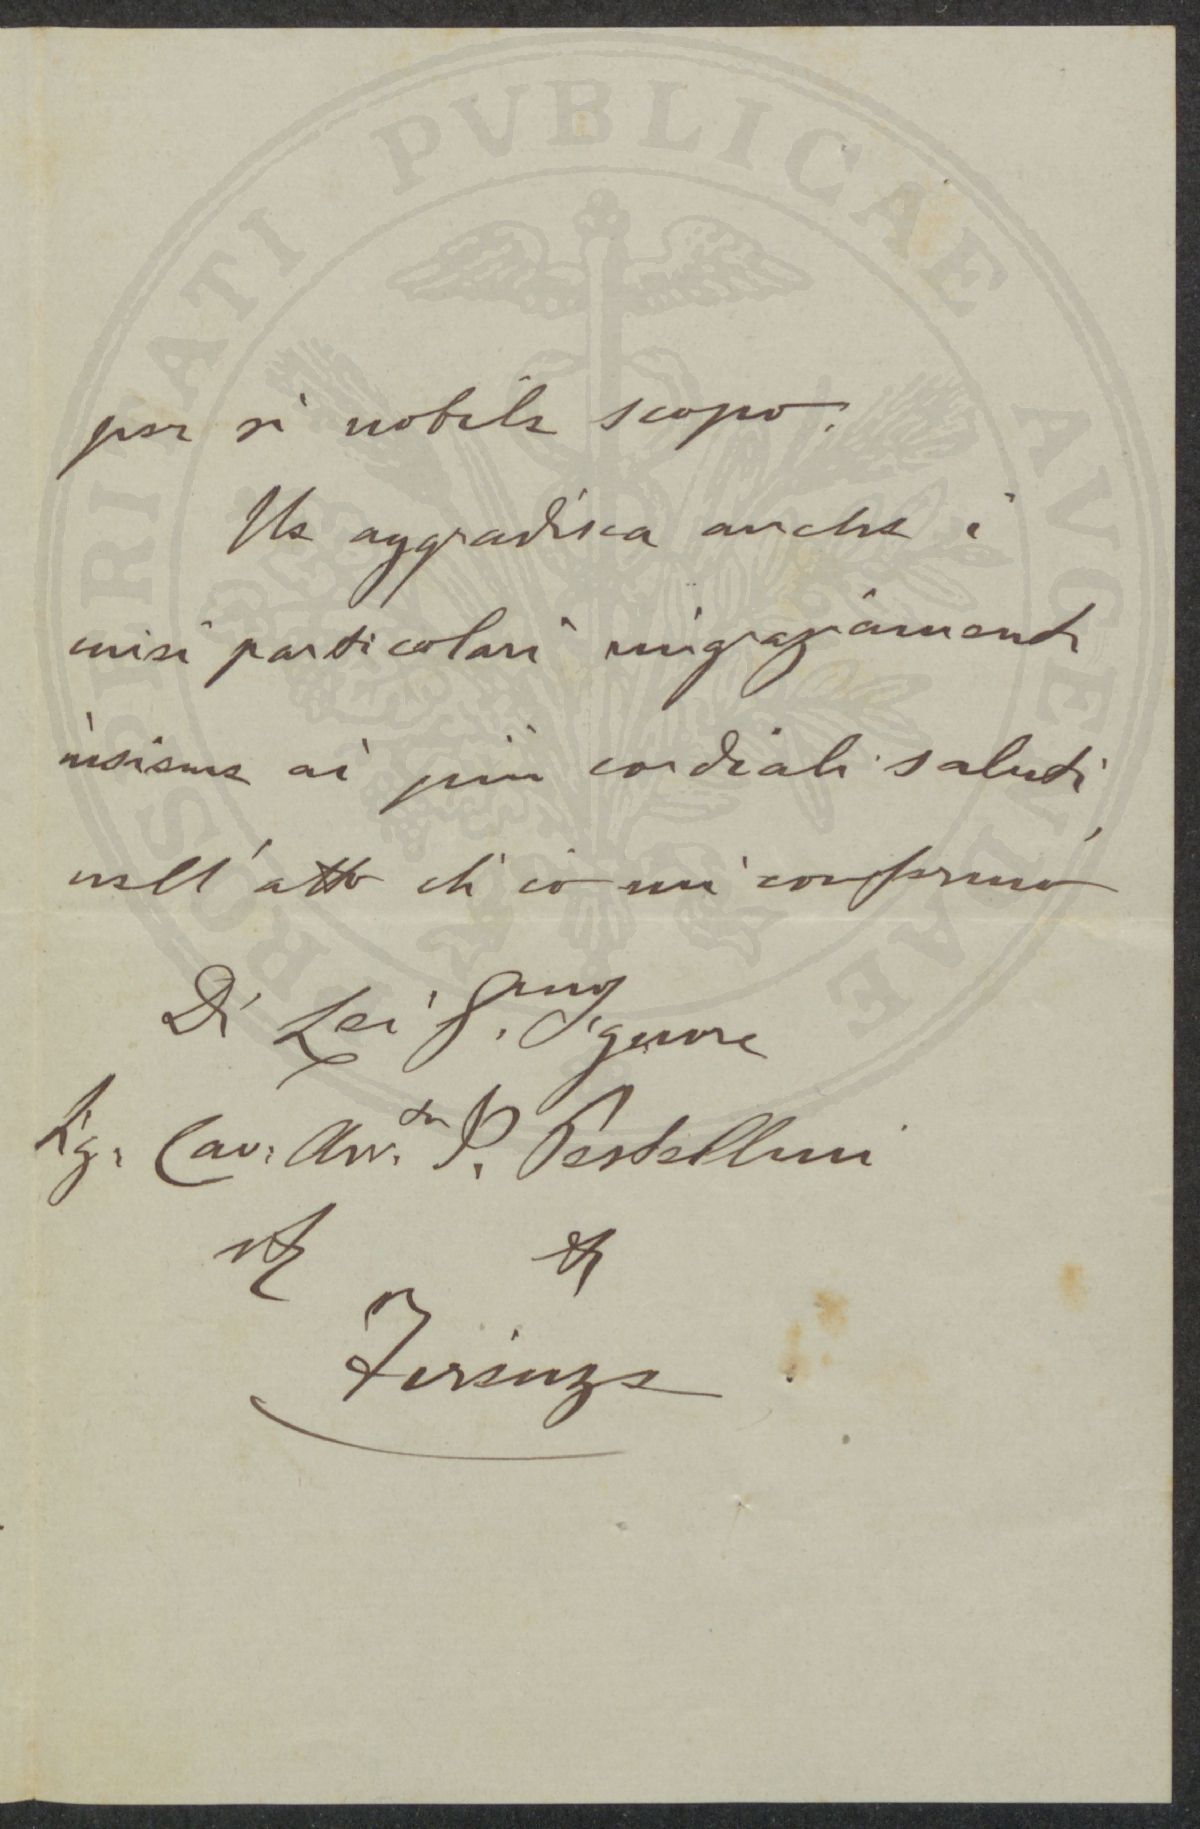 PROSPERITATI PVBLICAE AVGENDAE
per sì nobile scopo.
Ne aggradisca anche i
miei particolari ringraziamenti
insieme ai più cordiali saluti
nell'atto che io mi confermo
Di Lei G.mo Signore
Sig. Cav. Avv.to P. Pestellini
Firenze